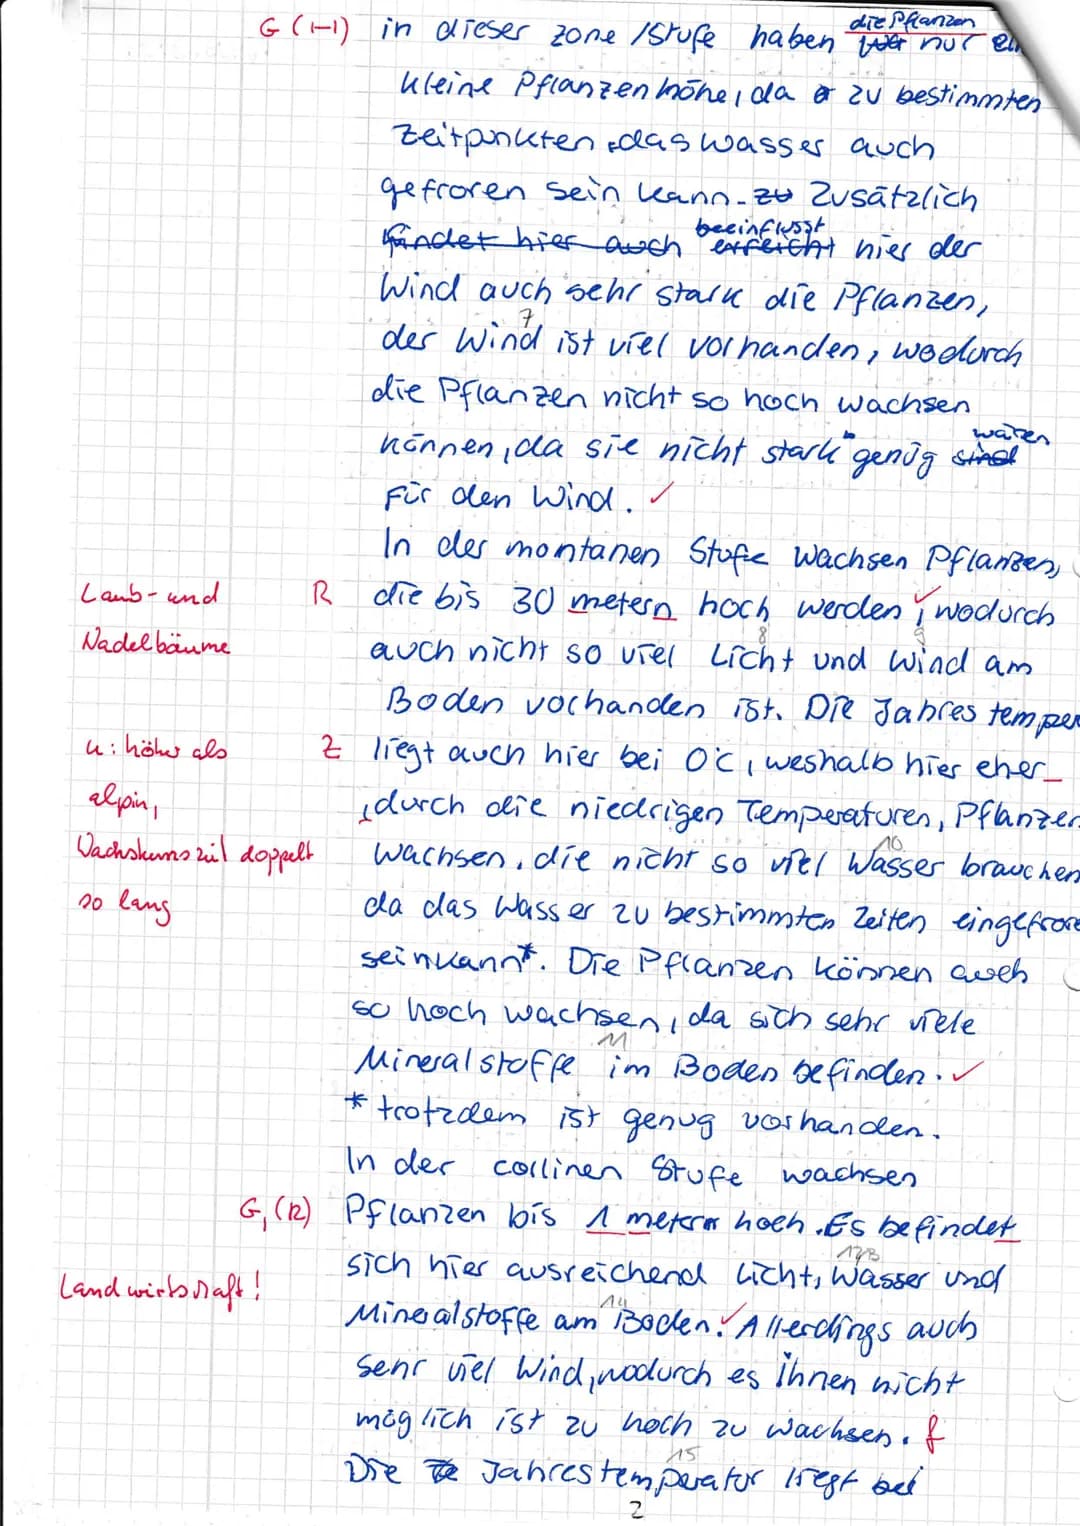 die Pflanzen
G (1-1) in dieser zone /Stufe haben nur
kleine Pflanzenhöhe, da zu bestimmten
Zeitpunkten das Wasser auch
gefroren sein kann. zu Zusätzlich
beeinflusst
findet hier auch erreicht hier der
Wind auch sehr stark die Pflanzen,
7
der Wind ist viel vorhanden, wodurch
die Pflanzen nicht so hoch wachsen
wären
können, da sie nicht stark genug sind
für den Wind. ✓
In der montanen Stufe wachsen Pflanzen,
Laub- und R die bis 30 metern hoch werden, wodurch
8 9
Nadelbäume auch nicht so viel Licht und Wind am
Boden vorhanden ist. Die Jahrestemper
u: höher als Z liegt auch hier bei 0°C, weshalb hier eher
alpin, , durch die niedrigen Temperaturen, Pflanzen
10
Wachstumszeit doppelt wachsen, die nicht so viel Wasser brauchen
so lang da das Wasser zu bestimmten Zeiten eingefrore
sein kann*. Die Pflanzen können auch
so hoch wachsen, da sich sehr viele
11
Mineralstoffe im Boden befinden. ✓
* trotzdem ist genug vorhanden.
In der collinen Stufe wachsen
G, (R) Pflanzen bis 1 metern hoch. Es befindet
sich hier ausreichend Licht, Wasser und
Landwirtschaft!
14
Mineralstoffe am Boden. ✓ Allerdings auch
sehr viel Wind, wodurch es ihnen nicht
möglich ist zu hoch zu wachsen. f
15
Die Jahrestemperatur liegt bei
2